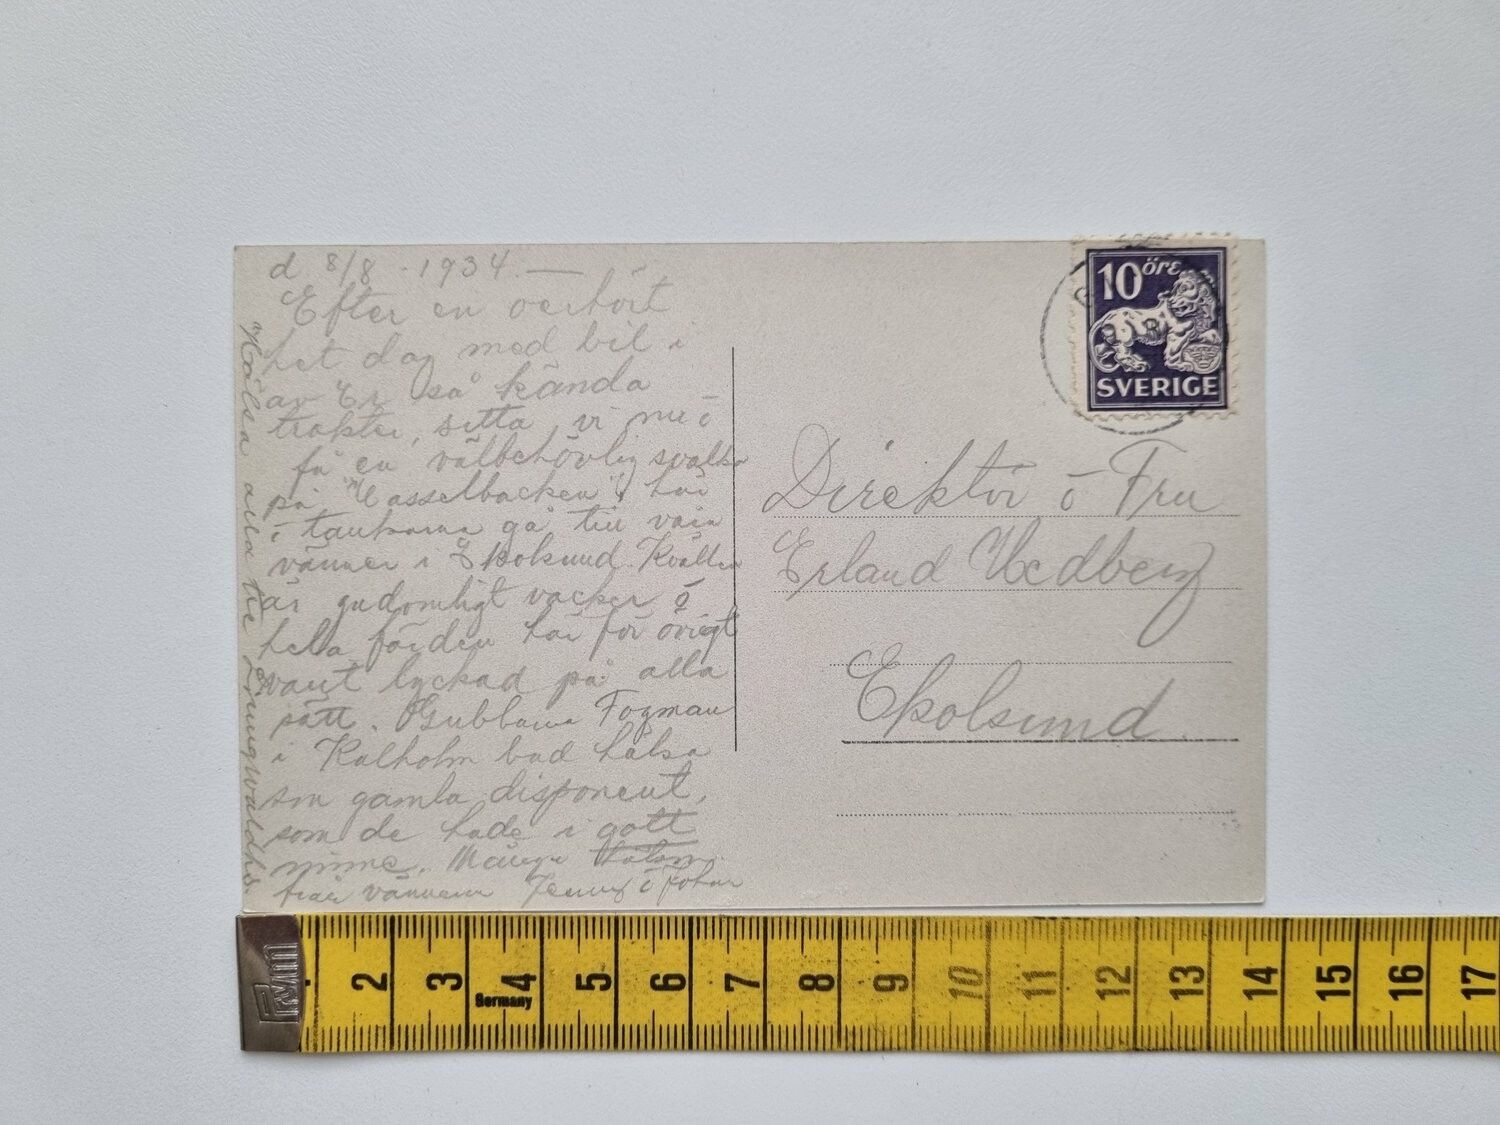 d 8/8 - 1934 —
Efter en oerhört
het dag med bil i
av Er så kända
trakter, sitta vi nu o
få en välbehövlig svalka
på "Hasselbacken", här
i tankarna gå till våra
vänner i Ekolsund. Kvällen
är gudomligt vacker o
hela färden har för övrigt
varit lyckad på alla
sätt. Gubbarna
i bad hälsa
sin gamla disponent,
som de hade i gott
minne. Många
från vännerna Jenny o Johan
Hälsa alla till
10 öre
SVERIGE
Direktör o Fru
Erland Hedberg
Ekolsund
Prym
2 3 4 5 6 7 8 9 10 11 12 13 14 15 16 17
Germany